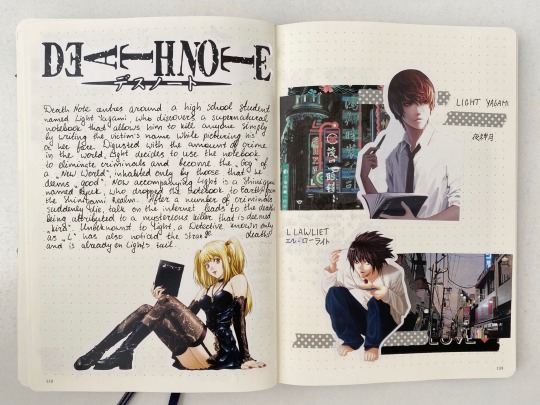 DEATHNOTE
デスノート
Death Note centres around a high school student
named Light Yagami, who discovers a supernatural
notebook that allows him to kill anyone simply
by writing the victim's name while picturing his
or her face. Digusted with the amount of crime
in the world, Light decides to use the notebook
to eliminate criminals and become the of
a „New World", inhabited only by those that he
deems „good". Now accompanying Light is a Shinigami
named Ryuk, who dropped the notebook to Earth from
the Shinigami Realm. After a number of criminals
suddenly die, talk on the internet leads to the deaths
being attributed to a mysterious killer that is deemed
„kira". to Light, a Detective known only
as „L" has also noticed the deaths
and is already on Light's tail.
LIGHT YAGAMI
夜神月
L LAWLIET
エル・ローライト
LOVE